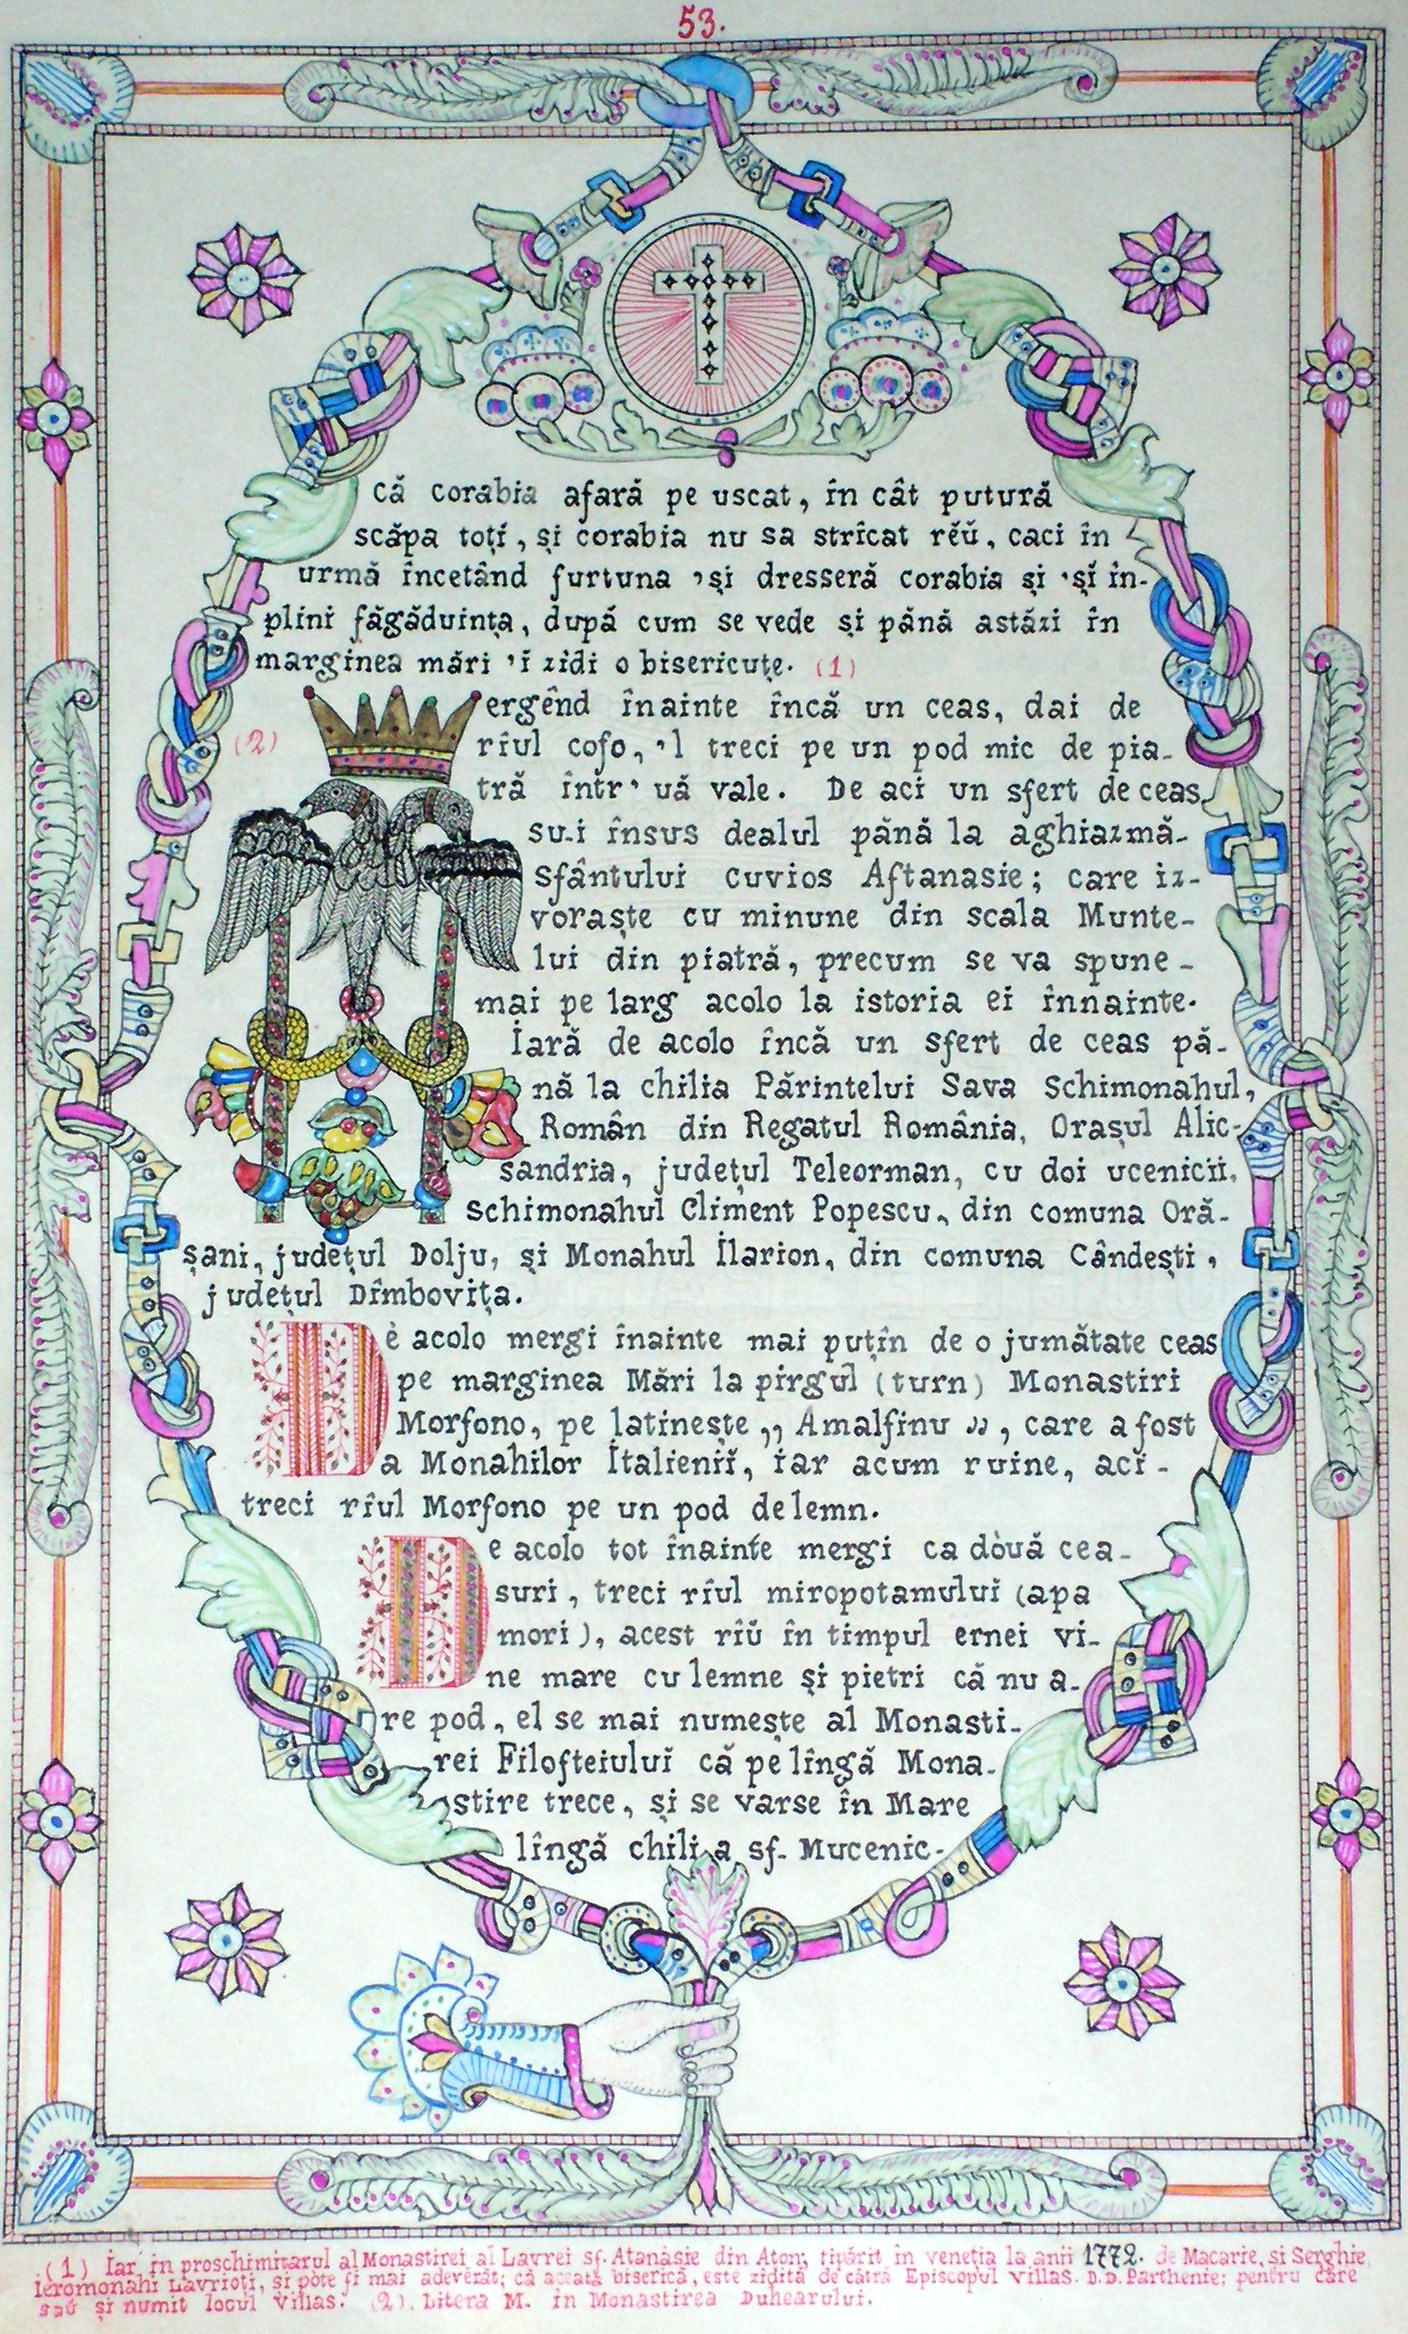 53.
că corabia afară pe uscat, în cât putură
scăpa toți, și corabia nu sa strîcat rĕŭ, caci în
urmă încetând furtuna 'și dresseră corabia și 'și în-
plini făgăduința, după cum se vede și până astăzi în
marginea mări 'i zidi o bisericuțe. (1)
(2) ergênd înainte încă un ceas, dai de
rîul cofo, 'l treci pe un pod mic de pia-
tră într' uă vale. De aci un sfert de ceas
su-i însus dealul până la aghiazmă-
sfântului cuvios Aftanasie; care iz-
voraște cu minune din scala Munte-
lui din piatră, precum se va spune-
mai pe larg acolo la istoria ei înnainte.
Iară de acolo încă un sfert de ceas pă-
nă la chilia Părintelui Sava Schimonahul,
Român din Regatul România, Orașul Alic-
sandria, județul Teleorman, cu doi ucenicii,
Schimonahul Climent Popescu, din comuna Oră-
șani, județul Dolju, și Monahul Ilarion, din comuna Cândești,
județul Dîmbovița.
De acolo mergi înainte mai puțîn de o jumătate ceas
pe marginea Mări la pirgul (turn) Monastiri
Morfono, pe latinește ,, Amalfinu ,, , care a fost
a Monahilor Italieniĭ, iar acum ruine, acĭ-
treci rîul Morfono pe un pod de lemn.
De acolo tot înainte mergi ca două cea-
suri, treci rîul miropotamuluĭ (apa
mori), acest rîŭ în timpul ernei vi-
ne mare cu lemne și pietri că nu a-
re pod, el se mai numește al Monasti-
rei Filofteiuluĭ că pe lîngă Mona-
stire trece, și se varse în Mare
lîngă chilia sf. Mucenic-
(1) Iar, în proschimitarul al Monastirei al Lavrei sf. Atanasie din Aton, tipărit în veneția la anii 1772. de Macarie, si Serghie,
Ieromonahi Lavrioți, și pote fi mai adevĕrat; că aceată biserică, este zidită de cătră Episcopul villas. D.D. Parthenie; pentru care
saŭ și numit locul Villas. (2). Litera M. în Monastirea Duhearului.